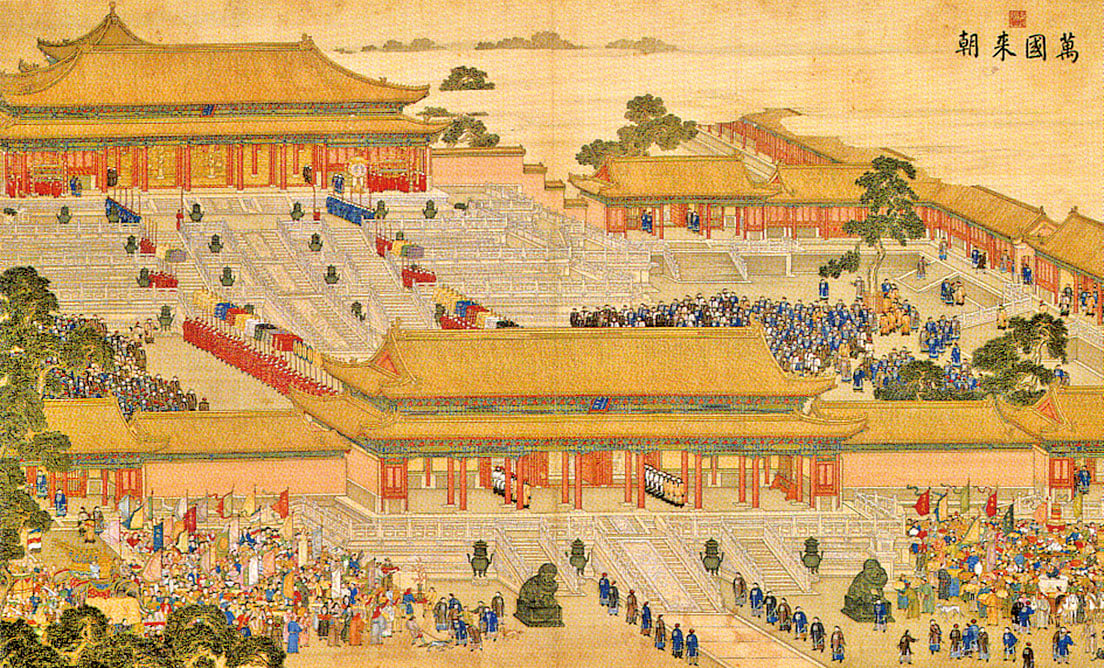 萬國來朝